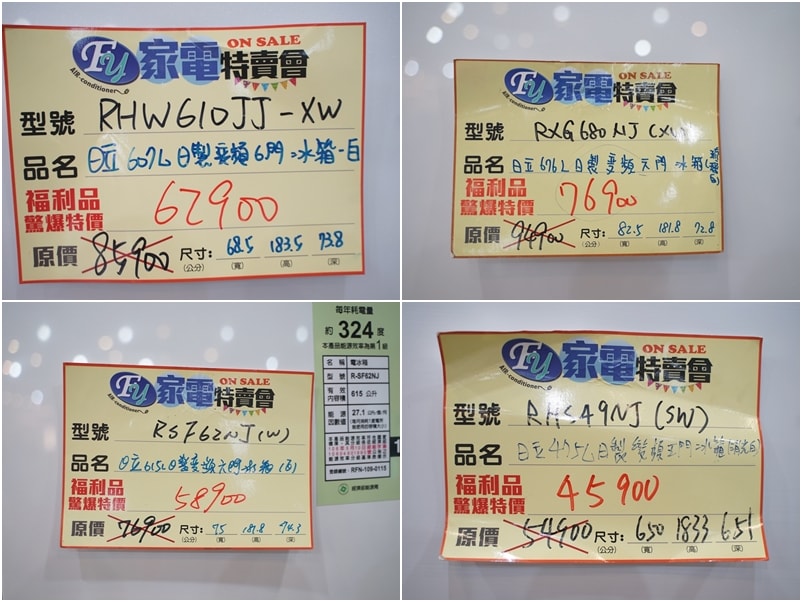 Fu 家電特賣會
ON SALE
AIR-conditioner
型號 RHW610JJ-XW
品名 日立607L日製變頻6門冰箱-白
福利品
驚爆特價
62900
原價 85,900 尺寸: 68.5 183.5 73.8
(公分) (寬) (高) (深)
Fu 家電特賣會
ON SALE
AIR-conditioner
型號 RXG680NJ(XW)
品名 日立676L日製變頻六門冰箱(琉璃白
福利品
驚爆特價
76900
原價 94900 尺寸: 82.5 181.8 72.8
(公分) (寬) (高) (深)
Fu 家電特賣會
ON SALE
AIR-conditioner
型號 RSF62NJ(W)
品名 日立615L日製變頻六門冰箱(白)
福利品
驚爆特價
58900
原價 76900 尺寸: 75 181.8 74.3
(公分) (寬) (高) (深)
每年耗電量
約 324 度
本產品能源效率為第1級
名稱 電冰箱
型號 R-SF62NJ
有效內容積 615 公升
能源因數值 27.1
RFN-109-0115
Fu 家電特賣會
ON SALE
AIR-conditioner
型號 RHS49NJ(SW)
品名 日立475L日製變頻五門冰箱(消光白)
福利品
驚爆特價
45900
原價 54900 尺寸: 650 1833 651
(公分) (寬) (高) (深)